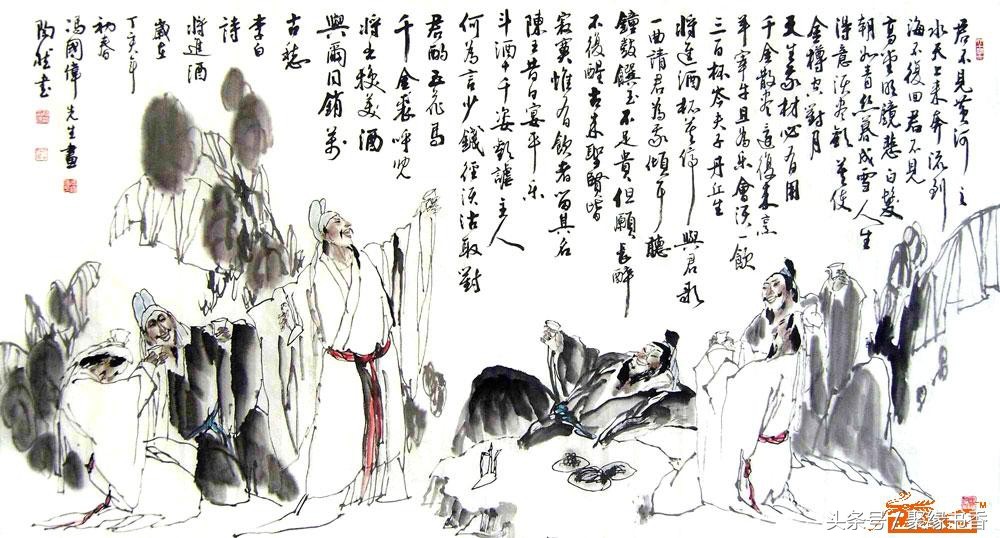 君不見黃河之
水天上来奔流到
海不復回君不見
高堂明鏡悲白髮
朝如青丝暮成雪人生
得意须尽歡莫使
金樽空對月
天生我材必有用
千金散尽還復来烹
羊宰牛且為乐會须一飲
三百杯岑夫子丹丘生
将進酒杯莫停與君歌
一曲請君為我傾耳聽
鐘鼓饌玉不足貴但願長醉
不復醒古来聖賢皆
寂寞惟有飲者留其名
陳王昔日宴平乐
斗酒十千恣歡謔主人
何為言少錢徑须沽取對
君酌五花馬
千金裘呼兒
将出換美酒
與爾同銷萬
古愁
李白
詩
将進酒
歲在
丁亥年
初春
馮國偉先生畫
陶然書
头条号/聚缘书香
TM